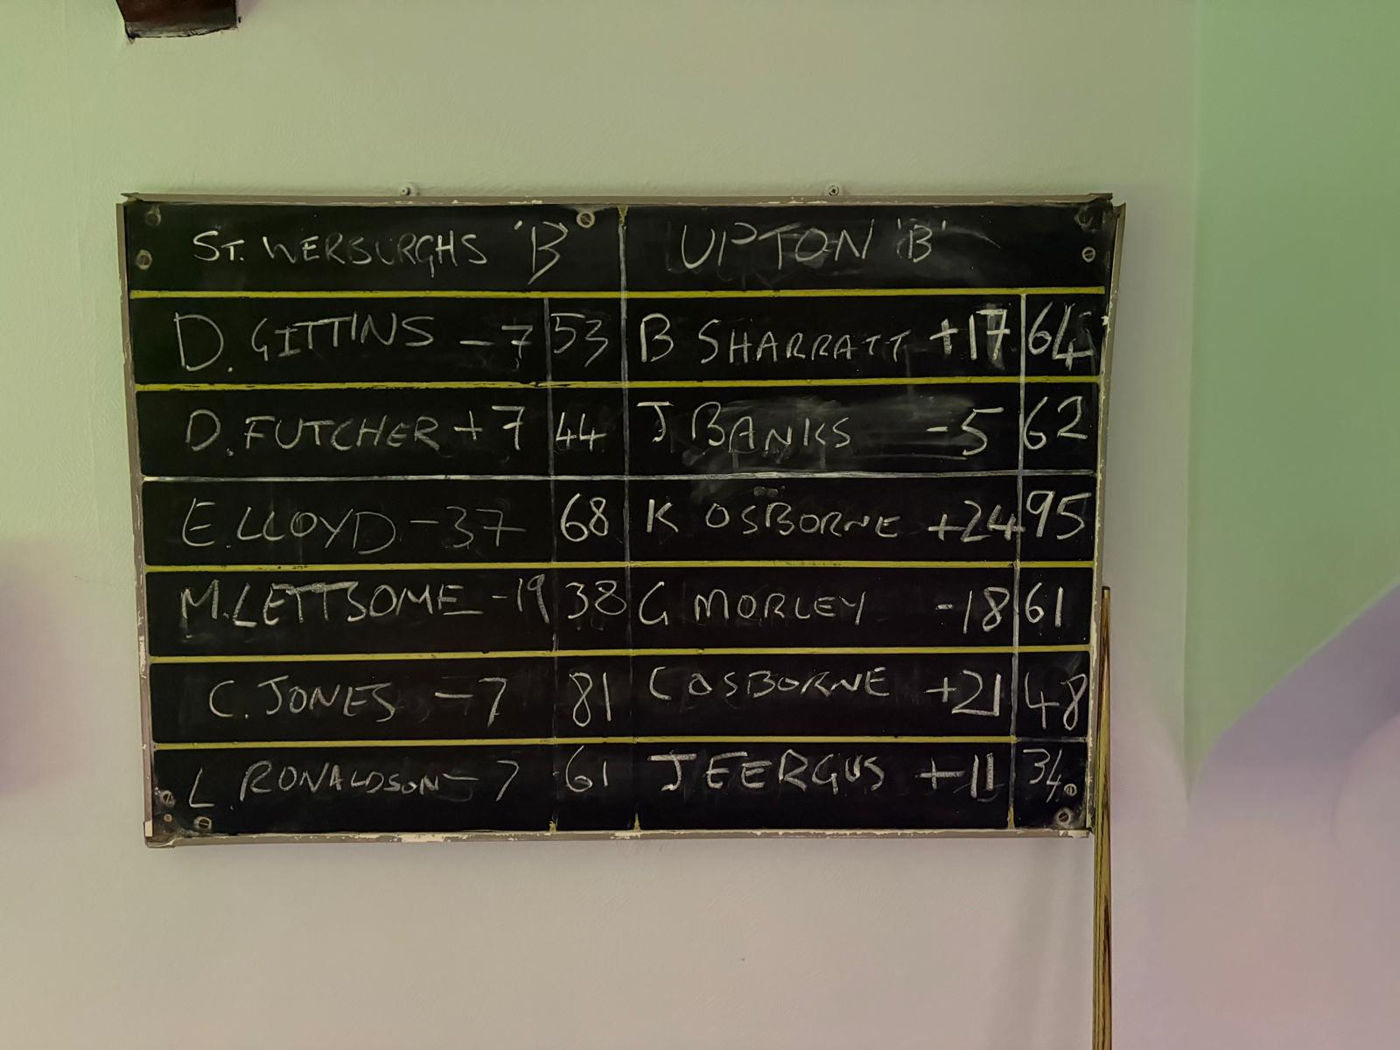 ST. WERBURGHS 'B' UPTON 'B'
D. GITTINS -7 53 B SHARRATT +17 64
D. FUTCHER +7 44 J BANKS -5 62
E. LLOYD -37 68 K OSBORNE +24 95
M. LETTSOME -19 38 G MORLEY -18 61
C. JONES -7 81 C OSBORNE +21 48
L. RONALDSON -7 61 J FERGUS +11 34